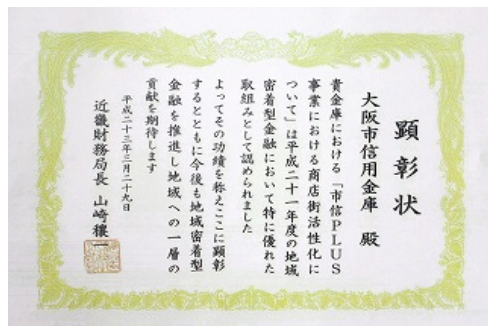 顕彰状
大阪市信用金庫 殿
貴金庫における「市信PLUS
事業における商店街活性化に
ついて」は平成二十一年度の地域
密着型金融において特に優れた
取組みとして認められました
よってその功績を称えここに顕彰
するとともに今後も地域密着型
金融を推進し地域への一層の
貢献を期待します
平成二十三年三月二十九日
近畿財務局長 山崎穰一